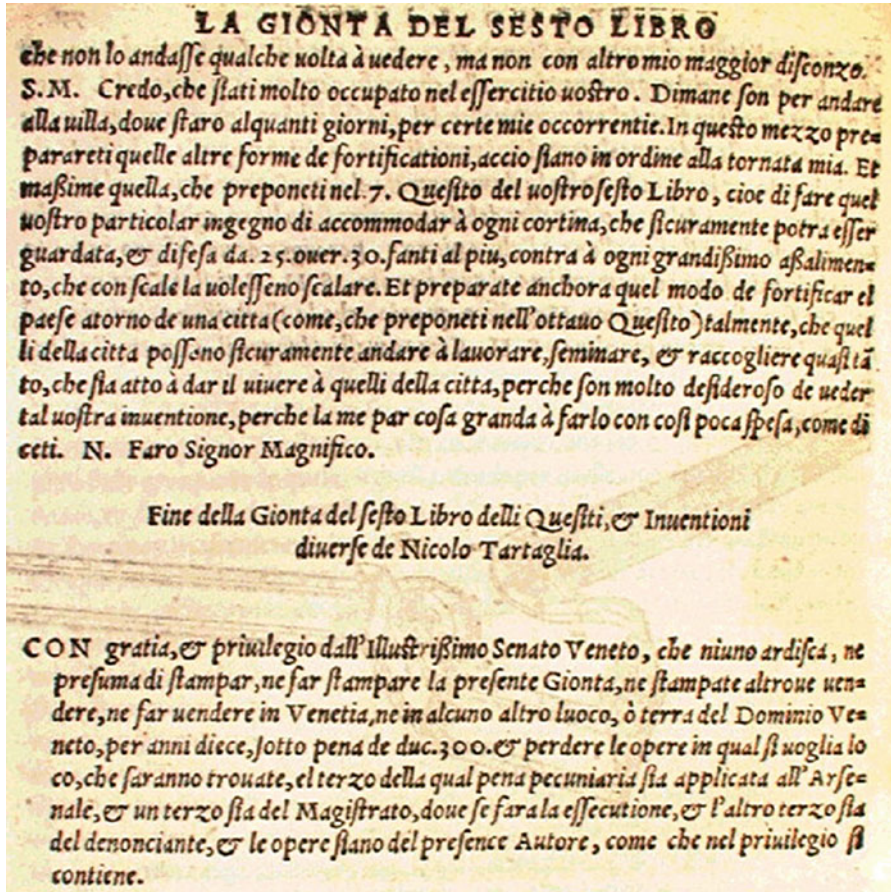 LA GIONTA DEL SESTO LIBRO
che non lo andaſſe qualche uolta à uedere, ma non con altro mio maggior diſconzo.
S.M. Credo, che ſiati molto occupato nel eſſercitio uoſtro. Dimane ſon per andare
alla uilla, doue ſtaro alquanti giorni, per certe mie occorrentie. In queſto mezzo pre=
parareti quelle altre forme de fortificationi, accio ſiano in ordine alla tornata mia. Et
maßime quella, che preponeti nel 7. Queſito del uoſtro ſeſto Libro, cioe di fare quel
uoſtro particolar ingegno di accommodar à ogni cortina, che ſicuramente potra eſſer
guardata, & difeſa da .25. ouer .30. fanti al piu, contra à ogni grandißimo aßalimen=
to, che con ſcale la uoleſſeno ſcalare. Et preparate anchora quel modo de fortificar el
paeſe atorno de una citta (come, che preponeti nell'ottauo Queſito) talmente, che quel
li della citta poſſano ſicuramente andare à lauorare, ſeminare, & raccogliere quaſi tã
to, che ſia atto à dar il uiuere à quelli della citta, perche ſon molto deſideroſo de ueder
tal uoſtra inuentione, perche la me par coſa granda à farlo con coſi poca ſpeſa, come di
ceti. N. Faro Signor Magnifico.
Fine della Gionta del ſeſto Libro delli Queſiti, & Inuentioni
diuerſe de Nicolo Tartaglia.
CON gratia, & priuilegio dall'Illuſtrißimo Senato Veneto, che niuno ardiſca, ne
preſuma di ſtampar, ne far ſtampare la preſente Gionta, ne ſtampate altroue uen=
dere, ne far uendere in Venetia, ne in alcuno altro luoco, ò terra del Dominio Ve=
neto, per anni diece, ſotto pena de duc. 300. & perdere le opere in qual ſi uoglia lo
co, che ſaranno trouate, el terzo della qual pena pecuniaria ſia applicata all'Arſe=
nale, & un terzo ſia del Magiſtrato, doue ſe fara la eſſecutione, & l'altro terzo ſia
del denonciante, & le opere ſiano del preſence Autore, come che nel priuilegio ſi
contiene.